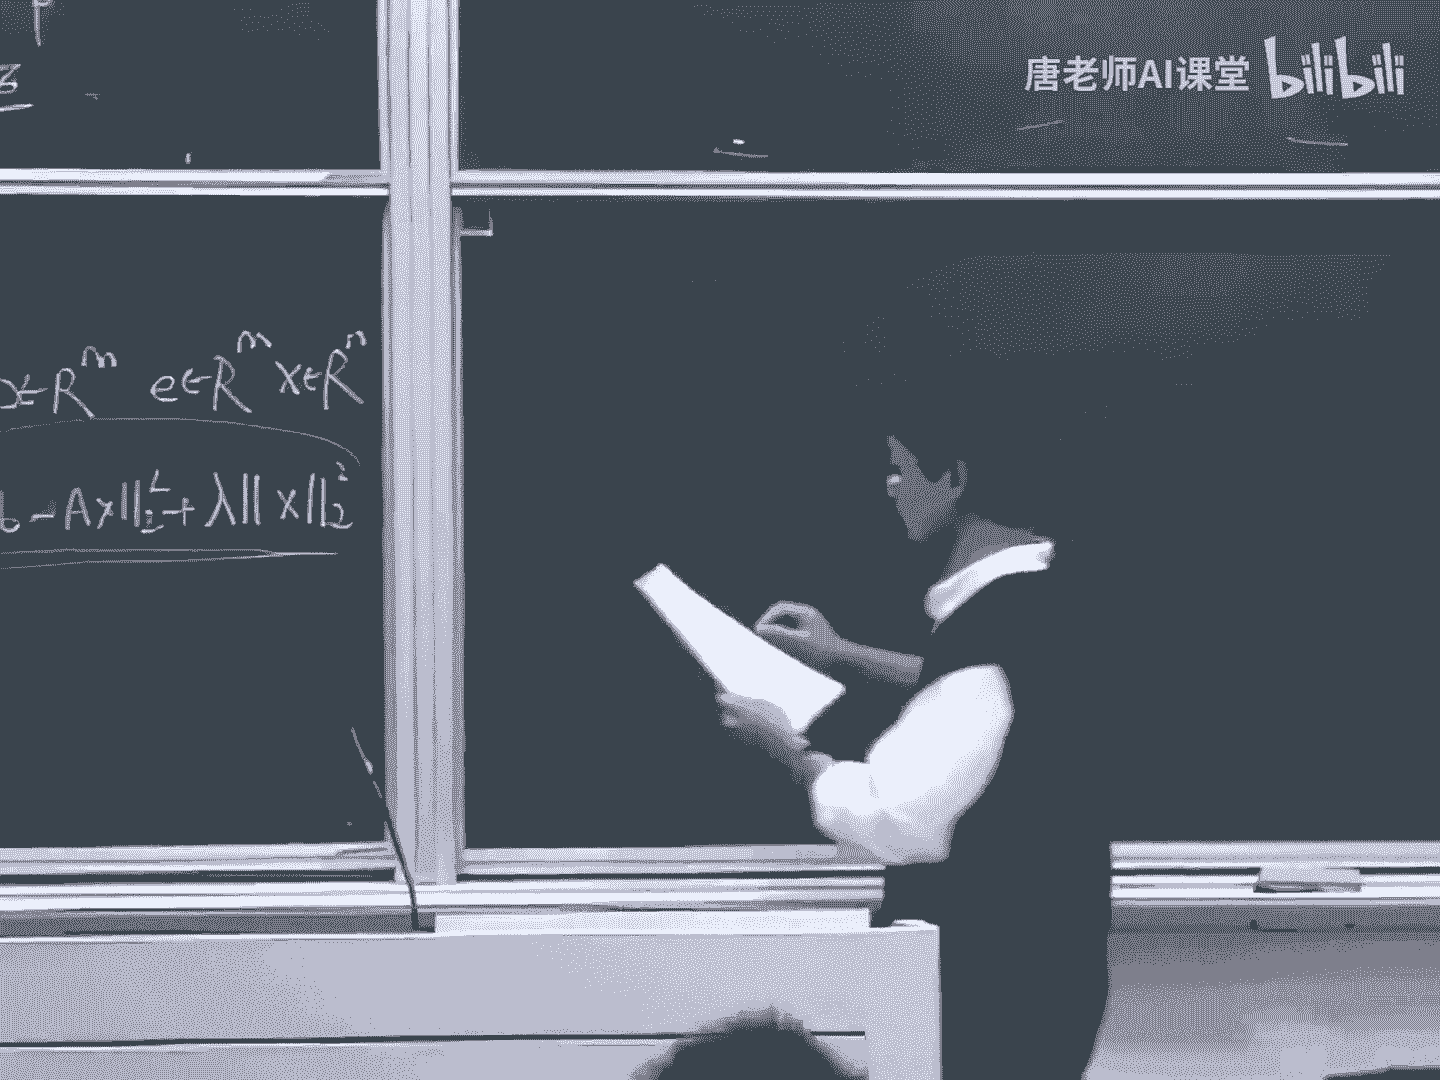 唐老师AI课堂 bilibili
∈R^m e∈R^m x∈R^n
b-Ax||_2^2+λ||x||_2^2